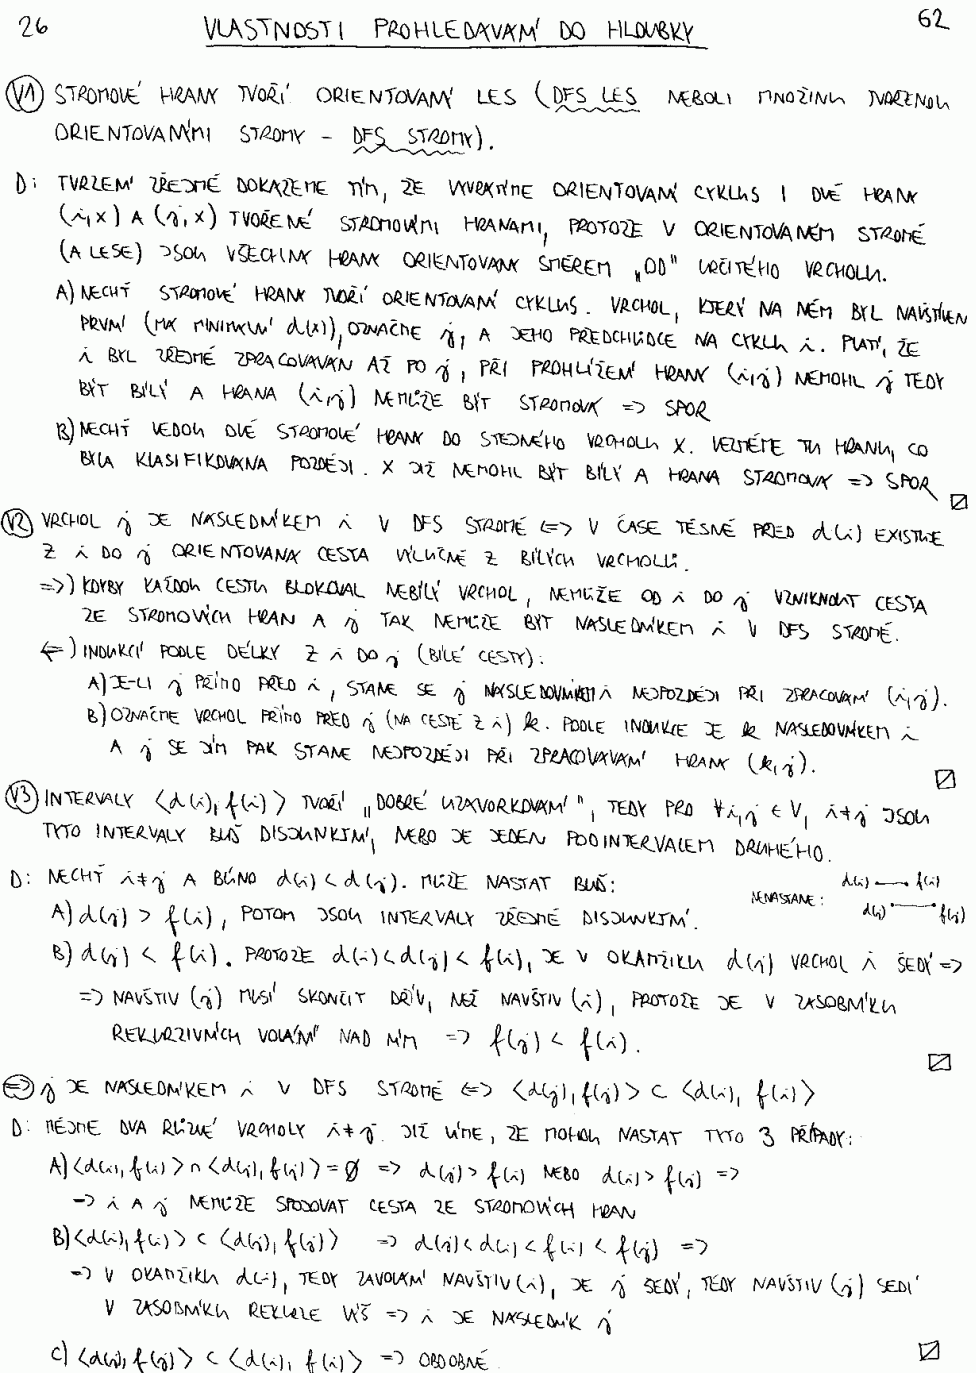 26 VLASTNOSTI PROHLEDÁVÁNÍ DO HLOUBKY 62
(V1) STROMOVÉ HRANY TVOŘÍ ORIENTOVANÝ LES (DFS LES NEBOLI MNOŽINU TVOŘENOU
ORIENTOVANÝMI STROMY – DFS STROMY).
D: TVRZENÍ ZŘEJMĚ DOKÁŽEME TÍM, ŽE VYVRÁTÍME ORIENTOVANÝ CYKLUS I DVĚ HRANY
(i,x) A (j,x) TVOŘENÉ STROMOVÝMI HRANAMI, PROTOŽE V ORIENTOVANÉM STROMĚ
(A LESE) JSOU VŠECHNY HRANY ORIENTOVANÝ SMĚREM „OD" URČITÉHO VRCHOLU.
A) NECHŤ STROMOVÉ HRANY TVOŘÍ ORIENTOVANÝ CYKLUS. VRCHOL, KTERÝ NA NĚM BYL NAVŠTÍVEN
PRVNÍ (MÁ MINIMÁLNÍ d(x)), OZNAČME j, A JEHO PŘEDCHŮDCE NA CYKLU i. PLATÍ, ŽE
i BYL ZŘEJMĚ ZPRACOVÁVÁN AŽ PO j, PŘI PROHLÍŽENÍ HRANY (i,j) NEMOHL j TEDY
BÝT BÍLÝ A HRANA (i,j) NEMŮŽE BÝT STROMOVÁ => SPOR
B) NECHŤ VEDOU DVĚ STROMOVÉ HRANY DO STEJNÉHO VRCHOLU X. VEZMĚME TU HRANU, CO
BYLA KLASIFIKOVÁNA POZDĚJI. X JIŽ NEMOHL BÝT BÍLÝ A HRANA STROMOVÁ => SPOR
(V2) VRCHOL j JE NÁSLEDNÍKEM i V DFS STROMĚ <=> V ČASE TĚSNĚ PŘED d(i) EXISTUJE
Z i DO j ORIENTOVANÁ CESTA VÝLUČNĚ Z BÍLÝCH VRCHOLŮ.
=>) KDYBY KAŽDOU CESTU BLOKOVAL NEBÍLÝ VRCHOL, NEMŮŽE OD i DO j VZNIKNOUT CESTA
ZE STROMOVÝCH HRAN A j TAK NEMŮŽE BÝT NÁSLEDNÍKEM i V DFS STROMĚ.
<=) INDUKCÍ PODLE DÉLKY Z i DO j (BÍLÉ CESTY):
A) JE-LI j PŘÍMO PŘED i, STANE SE j NÁSLEDOVNÍKEM i NEJPOZDĚJI PŘI ZPRACOVÁNÍ (i,j).
B) OZNAČME VRCHOL PŘÍMO PŘED j (NA CESTĚ Z i) k. PODLE INDUKCE JE k NÁSLEDOVNÍKEM i
A j SE JÍM PAK STANE NEJPOZDĚJI PŘI ZPRACOVÁVÁNÍ HRANY (k,j).
(V3) INTERVALY <d(i), f(i)> TVOŘÍ „DOBRÉ UZÁVORKOVÁNÍ", TEDY PRO ∀i,j ∈ V, i≠j JSOU
TYTO INTERVALY BUĎ DISJUNKTNÍ, NEBO JE JEDEN PODINTERVALEM DRUHÉHO.
D: NECHŤ i≠j A BÚNO d(i) < d(j). MŮŽE NASTAT BUĎ:
NENASTANE: d(i) f(i)
d(j) f(j)
A) d(j) > f(i), POTOM JSOU INTERVALY ZŘEJMĚ DISJUNKTNÍ.
B) d(j) < f(i). PROTOŽE d(i)<d(j)<f(i), JE V OKAMŽIKU d(j) VRCHOL i ŠEDÝ =>
=> NAVŠTIV(j) MUSÍ SKONČIT DŘÍV, NEŽ NAVŠTIV(i), PROTOŽE JE V ZÁSOBNÍKU
REKURZIVNÍCH VOLÁNÍ NAD NÍM => f(j) < f(i).
(=>) j JE NÁSLEDNÍKEM i V DFS STROMĚ <=> <d(j), f(j)> ⊂ <d(i), f(i)>
D: MĚJME DVA RŮZNÉ VRCHOLY i≠j. JIŽ VÍME, ŽE MOHOU NASTAT TYTO 3 PŘÍPADY:
A) <d(i), f(i)> ∩ <d(j), f(j)> = ∅ => d(j) > f(i) NEBO d(i) > f(j) =>
=> i A j NEMŮŽE SPOJOVAT CESTA ZE STROMOVÝCH HRAN
B) <d(i), f(i)> ⊂ <d(j), f(j)> => d(j)<d(i)<f(i)<f(j) =>
=> V OKAMŽIKU d(i), TEDY ZAVOLÁNÍ NAVŠTIV(i), JE j ŠEDÝ, TEDY NAVŠTIV(j) SEDÍ
V ZÁSOBNÍKU REKURZE NÍŽ => i JE NÁSLEDNÍK j
C) <d(j), f(j)> ⊂ <d(i), f(i)> => OBDOBNĚ